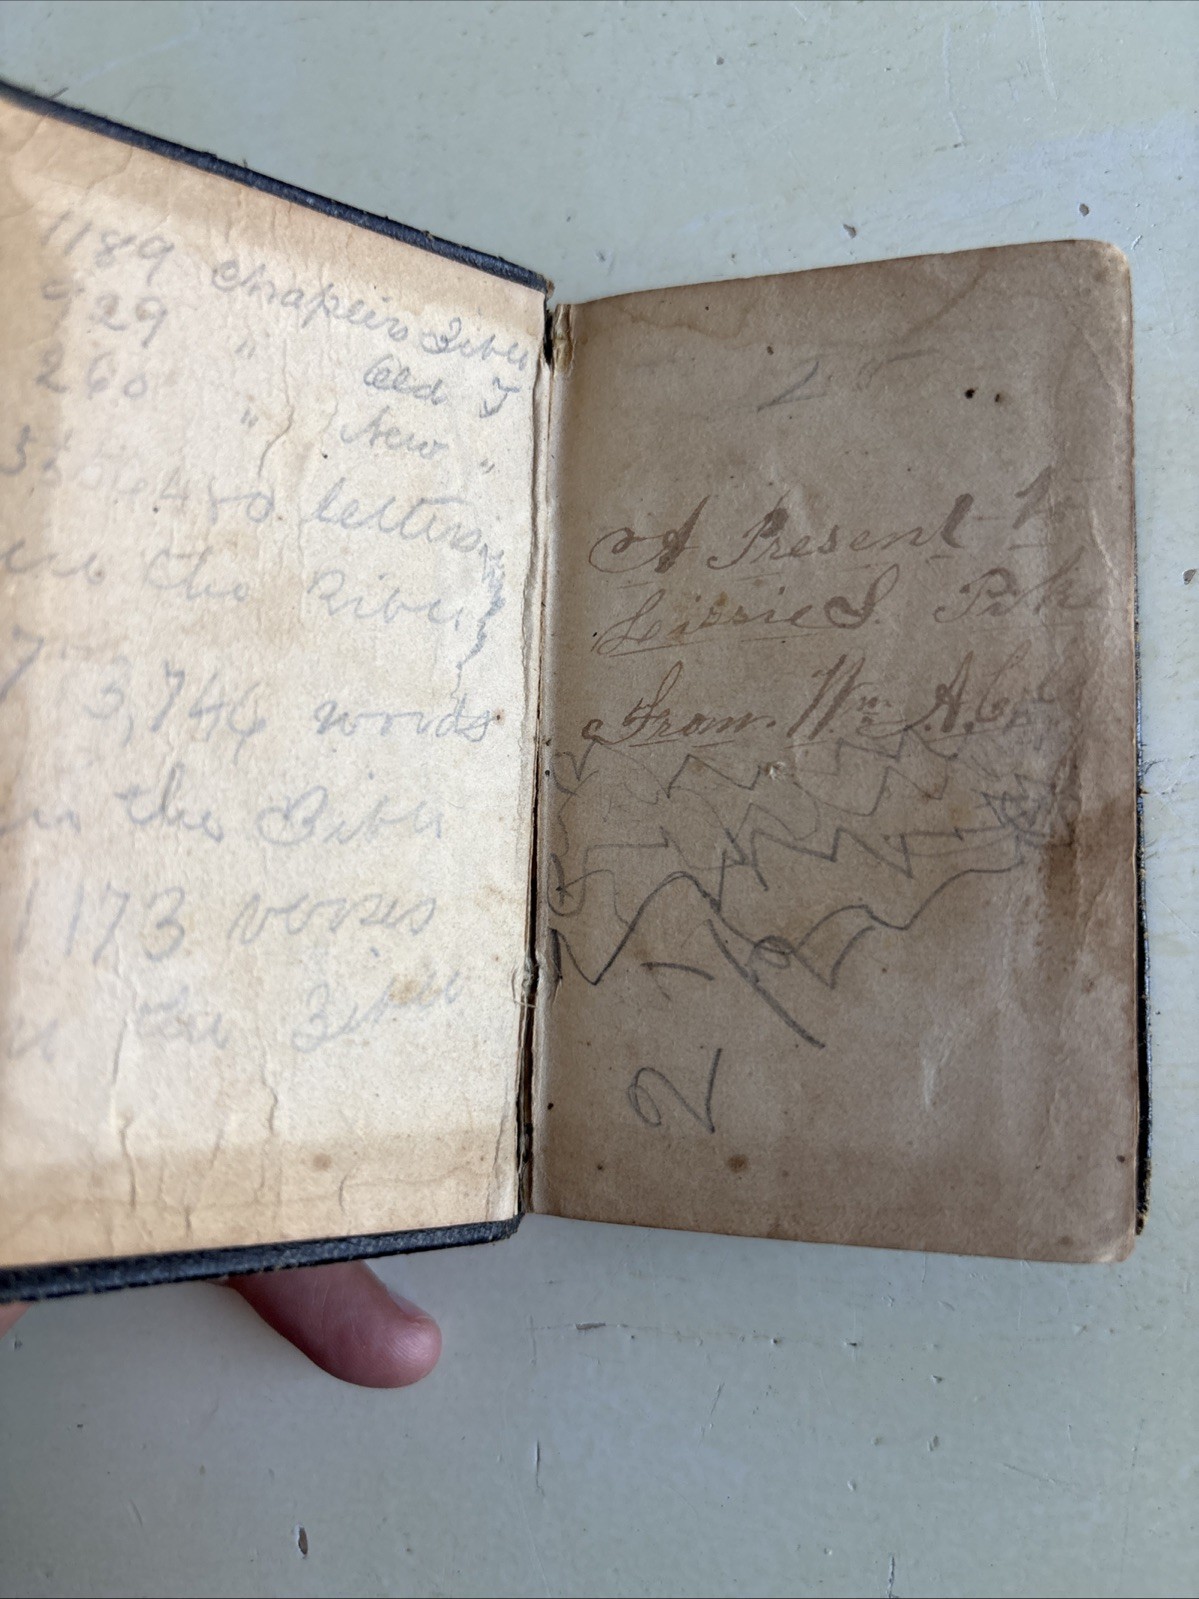 1189 Chapters Bible
929 " Old T
260 " New "
letters
the Bible
3,746 words
in the Bible
1173 verses
Bible
2
A Present to
Lizzie S. Pike
From Wm. A.
2